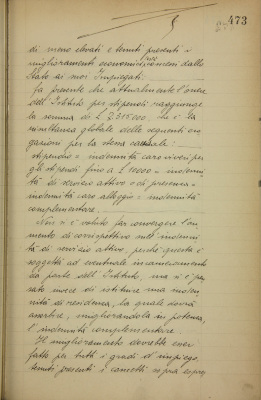 473
di meno elevati e tenuti presenti i
miglioramenti economici concessi dallo
Stato ai suoi Impiegati.
Fa presente che attualmente l'onere
dell'Istituto per stipendi raggiunge
la somma di £ 2.315.000 che è la
risultanza globale delle seguenti ero
gazioni per la stessa causale:
stipendio = indennità caro viveri per
gli stipendi fino a £ 12000 = indenni
tà di servizio attivo o di presenza =
indennità caro alloggio = indennità
complementare.
Non si è voluto far convergere l'au
mento di corrispettivo nell'indenni
tà di servizio attivo perché questa è
soggetta ad eventuale incameramento
da parte dell'Istituto, ma si è pen
sato invece di istituire una inden
nità di residenza, la quale dovrà
assorbire, migliorandola in potenza,
l'indennità complementare.
Il miglioramento dovrebbe esser
fatto per tutti i gradi d'impiego,
tenuti presenti i concetti sopra espres